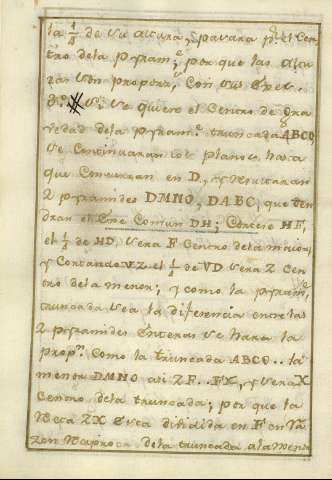 la 1/4 de su altura, pasara p.r el cen
tro dela pyram.e; porque las altu
ras son proporz.s con sus exes.
Si se quiere el Centro de gra
vedad dela pyram.e truncada ABCO,
se continuaran los planos hasta
que concurran en D, y resultaran
2 pyramides DMNO, DABC, que ten
dran el Exe Comun DH; Cortese HF,
el 1/4 de HD, sera F Centro dela maior,
y Cortando VZ el 1/4 de VD sera Z Cen
tro dela menor; y como la pyram.e
truncada sea la diferencia entre las
2 pyramides enteras se hara la
prop.n Como la truncada ABCO.. la
menor DMNO asi ZF..FX, y sera X
Centro dela truncada; por que la
Reca ZX esta dividida en F en ra
zon Reciproca dela truncada ala menor